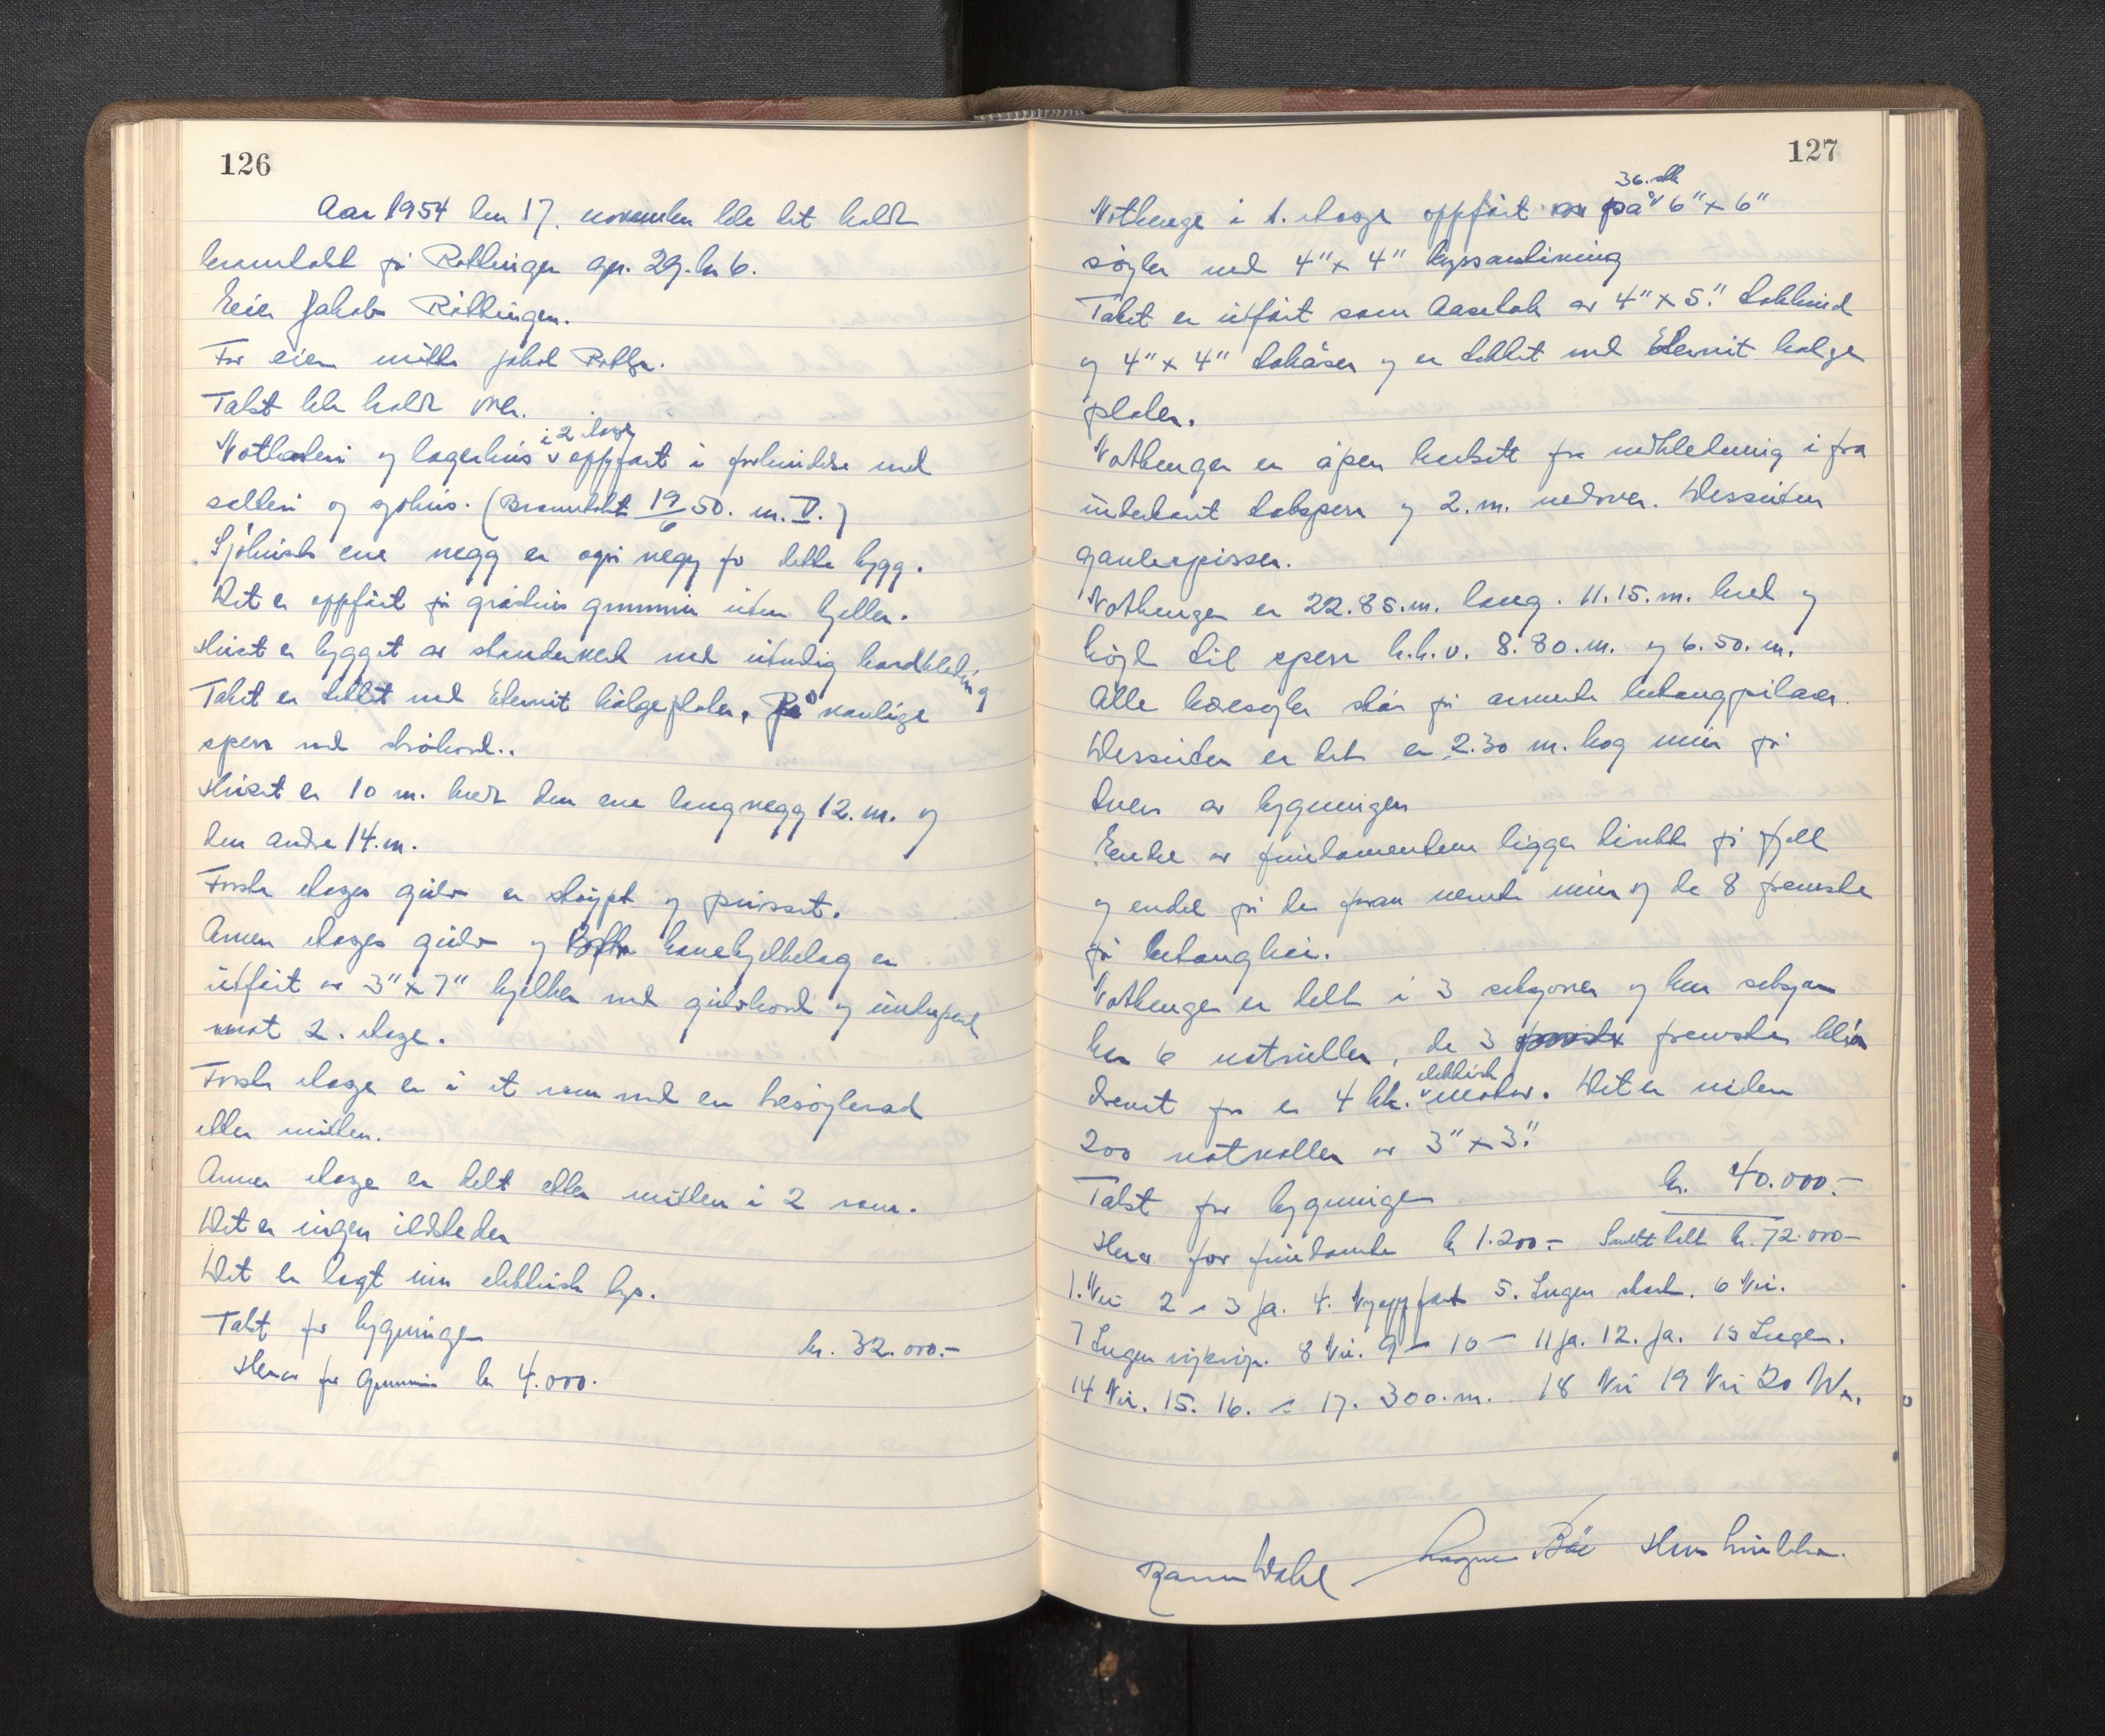 126
Aar 1954 den 17. november ble det holdt
branntakst på Røttingen gnr. 29. bn 6.
Eier Jakob Røttingen.
For eier møtte Jakob Røttgn.
Takst ble holdt over.
Notbøteri og lagerhus i 2 etasje oppført i forbindelse med
salteri og sjøhus. (Branntakst 19/6 50. m. V.)
Sjøhusets ene vegg er også vegg for dette bygg.
Det er oppført på gråsteins grunnmur uten kjeller.
Huset er bygget av stenderverk med utvendig bordkledning
Taket er tekket med Eternit bølgeplater, På vanlige
sperr med strøbord..
Huset er 10 m. bredt den ene langvegg 12. m. og
den andre 14. m.
Første etasjes gulv er støypt og pusset.
Annen etasjes gulv og hanebjelkelag er
utført av 3" x 7" bjelker med gulvbord og underpanel
mot 2. etasje.
Første etasje er i et rom med en søylerad
etter midten.
Annen etasje er delt etter midten i 2 rom.
Det er ingen ildsteder
Det er lagt inn elektrisk lys.
Takst for bygningen kr. 32.000.-
Herav for grunnmur kr 4.000.
127
Nothenge i 1. etasje oppført på 36. stk 6" x 6"
søyler med 4" x 4" kryssavstivning
Taket er utført som Aasetak av 4" x 5" takbind
og 4" x 4" takåser og er tekket med Eternit bølge
plater.
Nothengen er åpen bortsett fra vedkledning i fra
underkant taksperr og 2. m. nedover. Dessuten
gavlspisser.
Nothengen er 22.85. m. lang. 11.15. m. bred og
høyde til sperr h.h.v. 8.80. m. og 6.50. m.
Alle bæresøyler står på armerte betongpilarer.
Dessuten er det en 2.30 m. høg mur på
tvers av bygningen
Endel av fundamentene ligger direkte på fjell
og endel på den foran nevnte mur og de 8 fremste
på betongkai.
Nothengen er delt i 3 seksjoner og hver seksjon
har 6 notruller, de 3 fremste blir
drevet fra en 4 hk. elektrisk motor. Det er videre
200 notvoller av 3" x 3"
Takst for bygningen kr. 40.000.-
Herav for fundamenter kr 1.200.- Samlet takst kr. 72.000-
1. Nei 2 - 3 Ja. 4. Nyoppført 5. Ingen 6 Nei.
7 Ingen 8 Nei. 9 - 10 - 11 Ja. 12. Ja. 13 Ingen.
14 Nei. 15. 16. - 17. 300. m. 18 Nei 19 Nei 20
Dahl Magne Bøe Hans